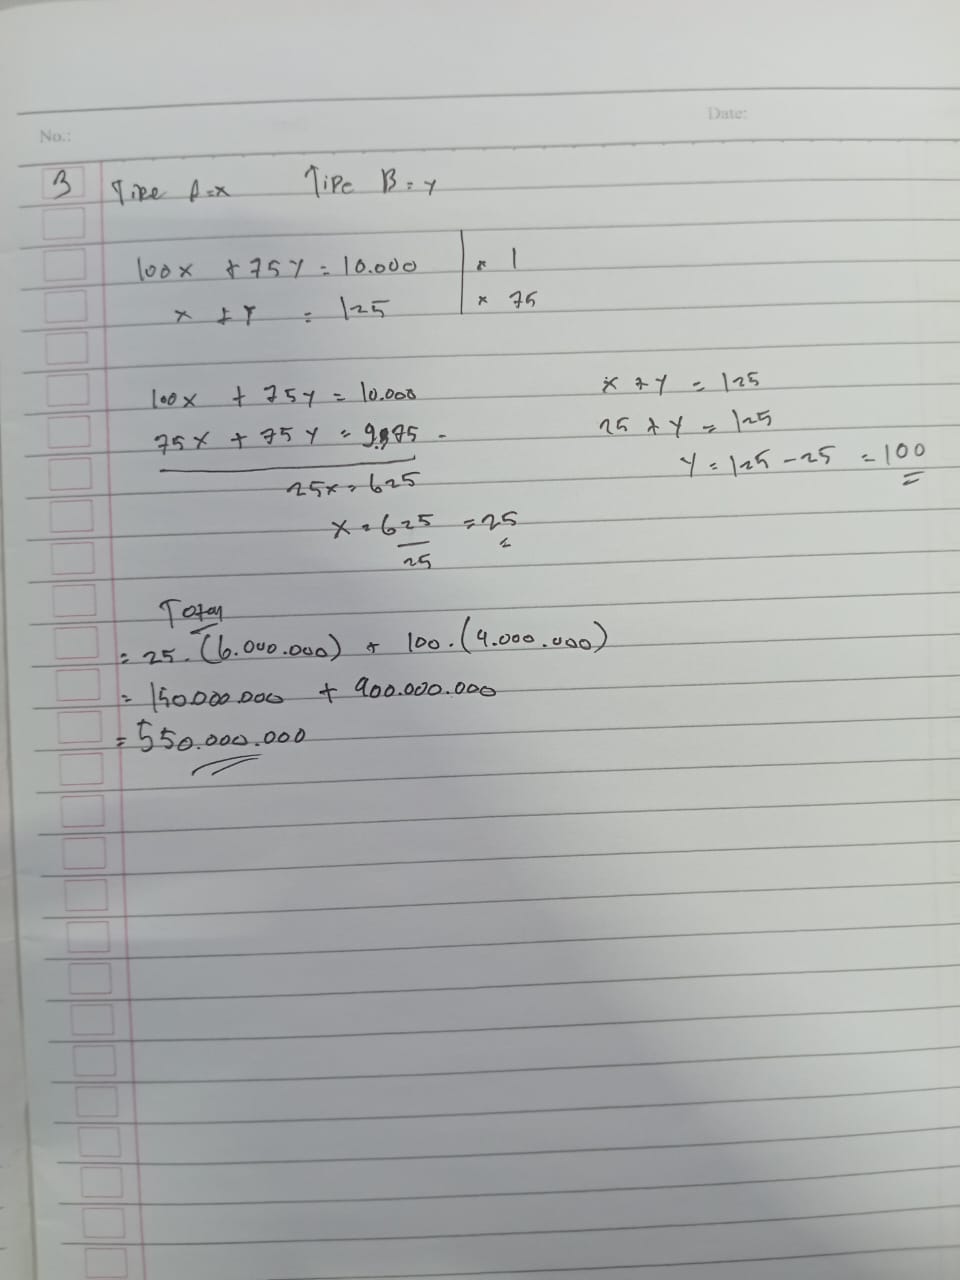 No.:
Date:
3 Tipe A=x Tipe B=y
100x + 75y = 10.000 | × 1
x + y = 125 | × 75
100x + 75y = 10.000
75x + 75y = 9.375 -
25x = 625
x = 625/25 = 25
x + y = 125
25 + y = 125
y = 125 - 25 = 100
Total
= 25.(6.000.000) + 100.(4.000.000)
= 150.000.000 + 400.000.000
= 550.000.000